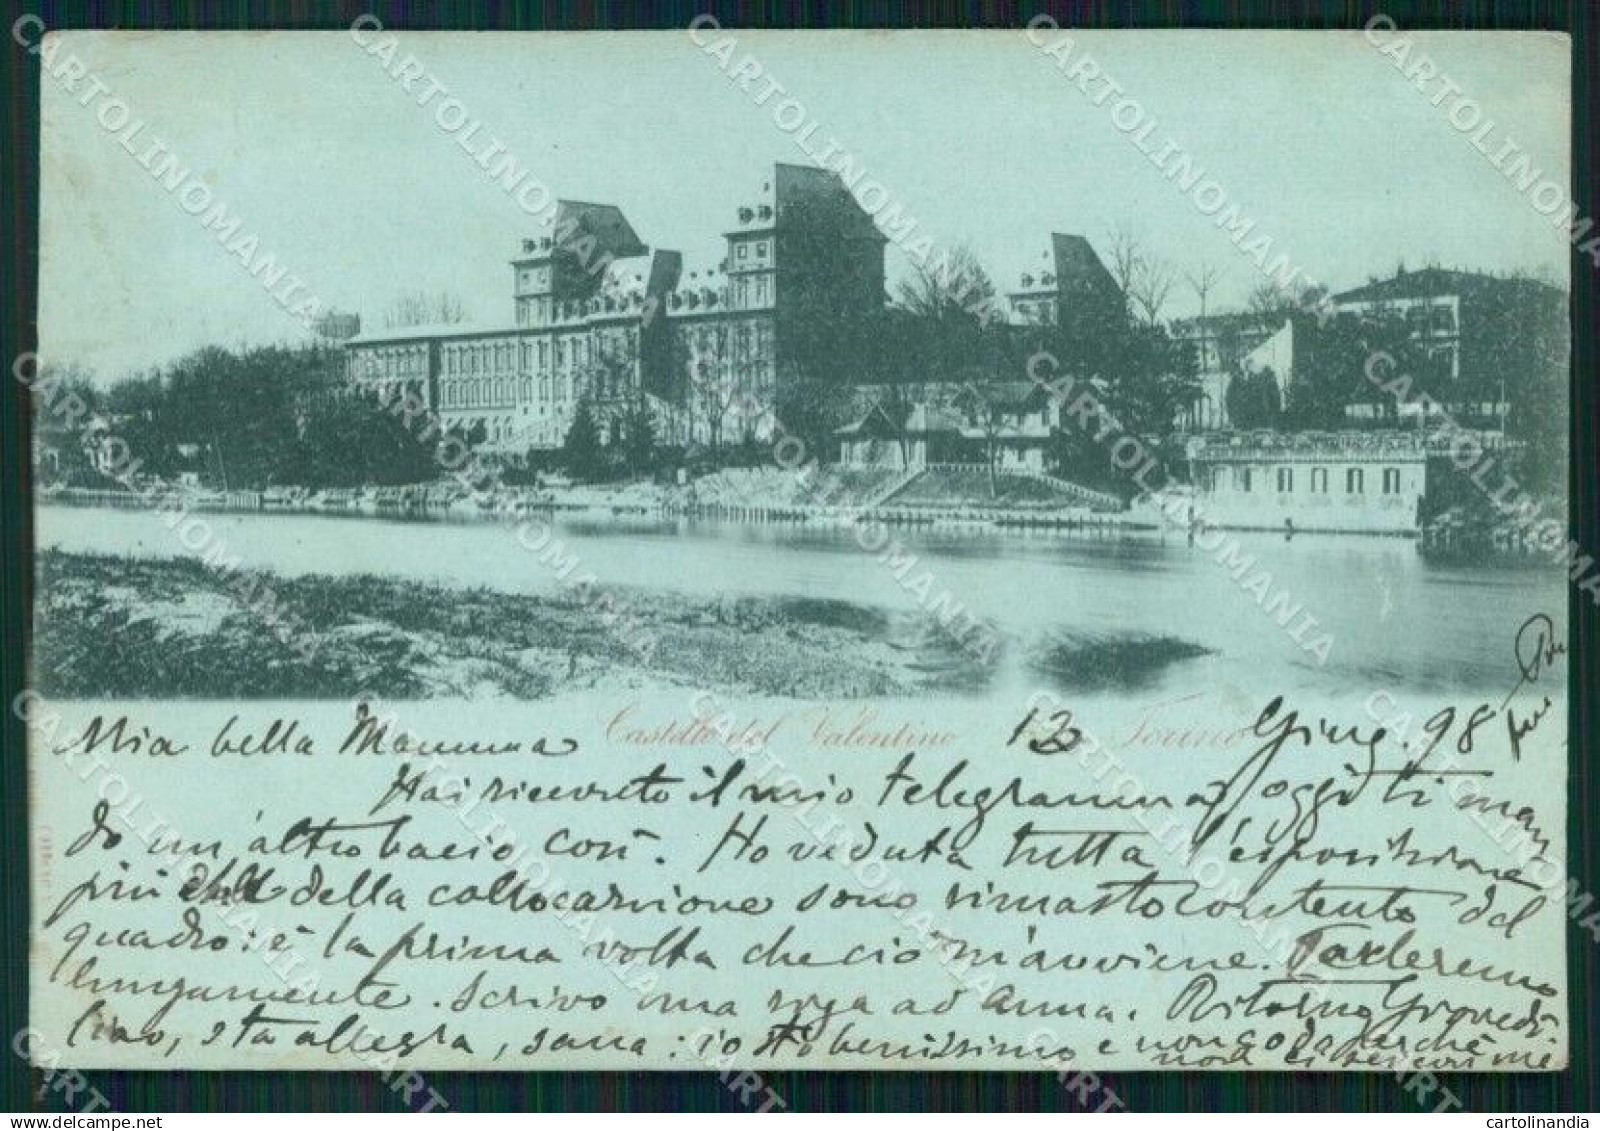 Castello del Valentino Torino
13 Giug. 98
Mia bella Mamma
Hai ricevuto il mio telegramma, oggi ti man
do un'altro bacio così. Ho veduta tutta l'esposizione
più della collocazione sono rimasto contento del
quadro: è la prima volta che ciò m'avviene. Parleremo
lungamente. Scrivo una riga ad Anna. Ritorno Giovedì
Ciao, sta allegra, sana: io sto benissimo e non godo perchè mi
non ci sei con
CARTOLINOMANIA
cartolinandia